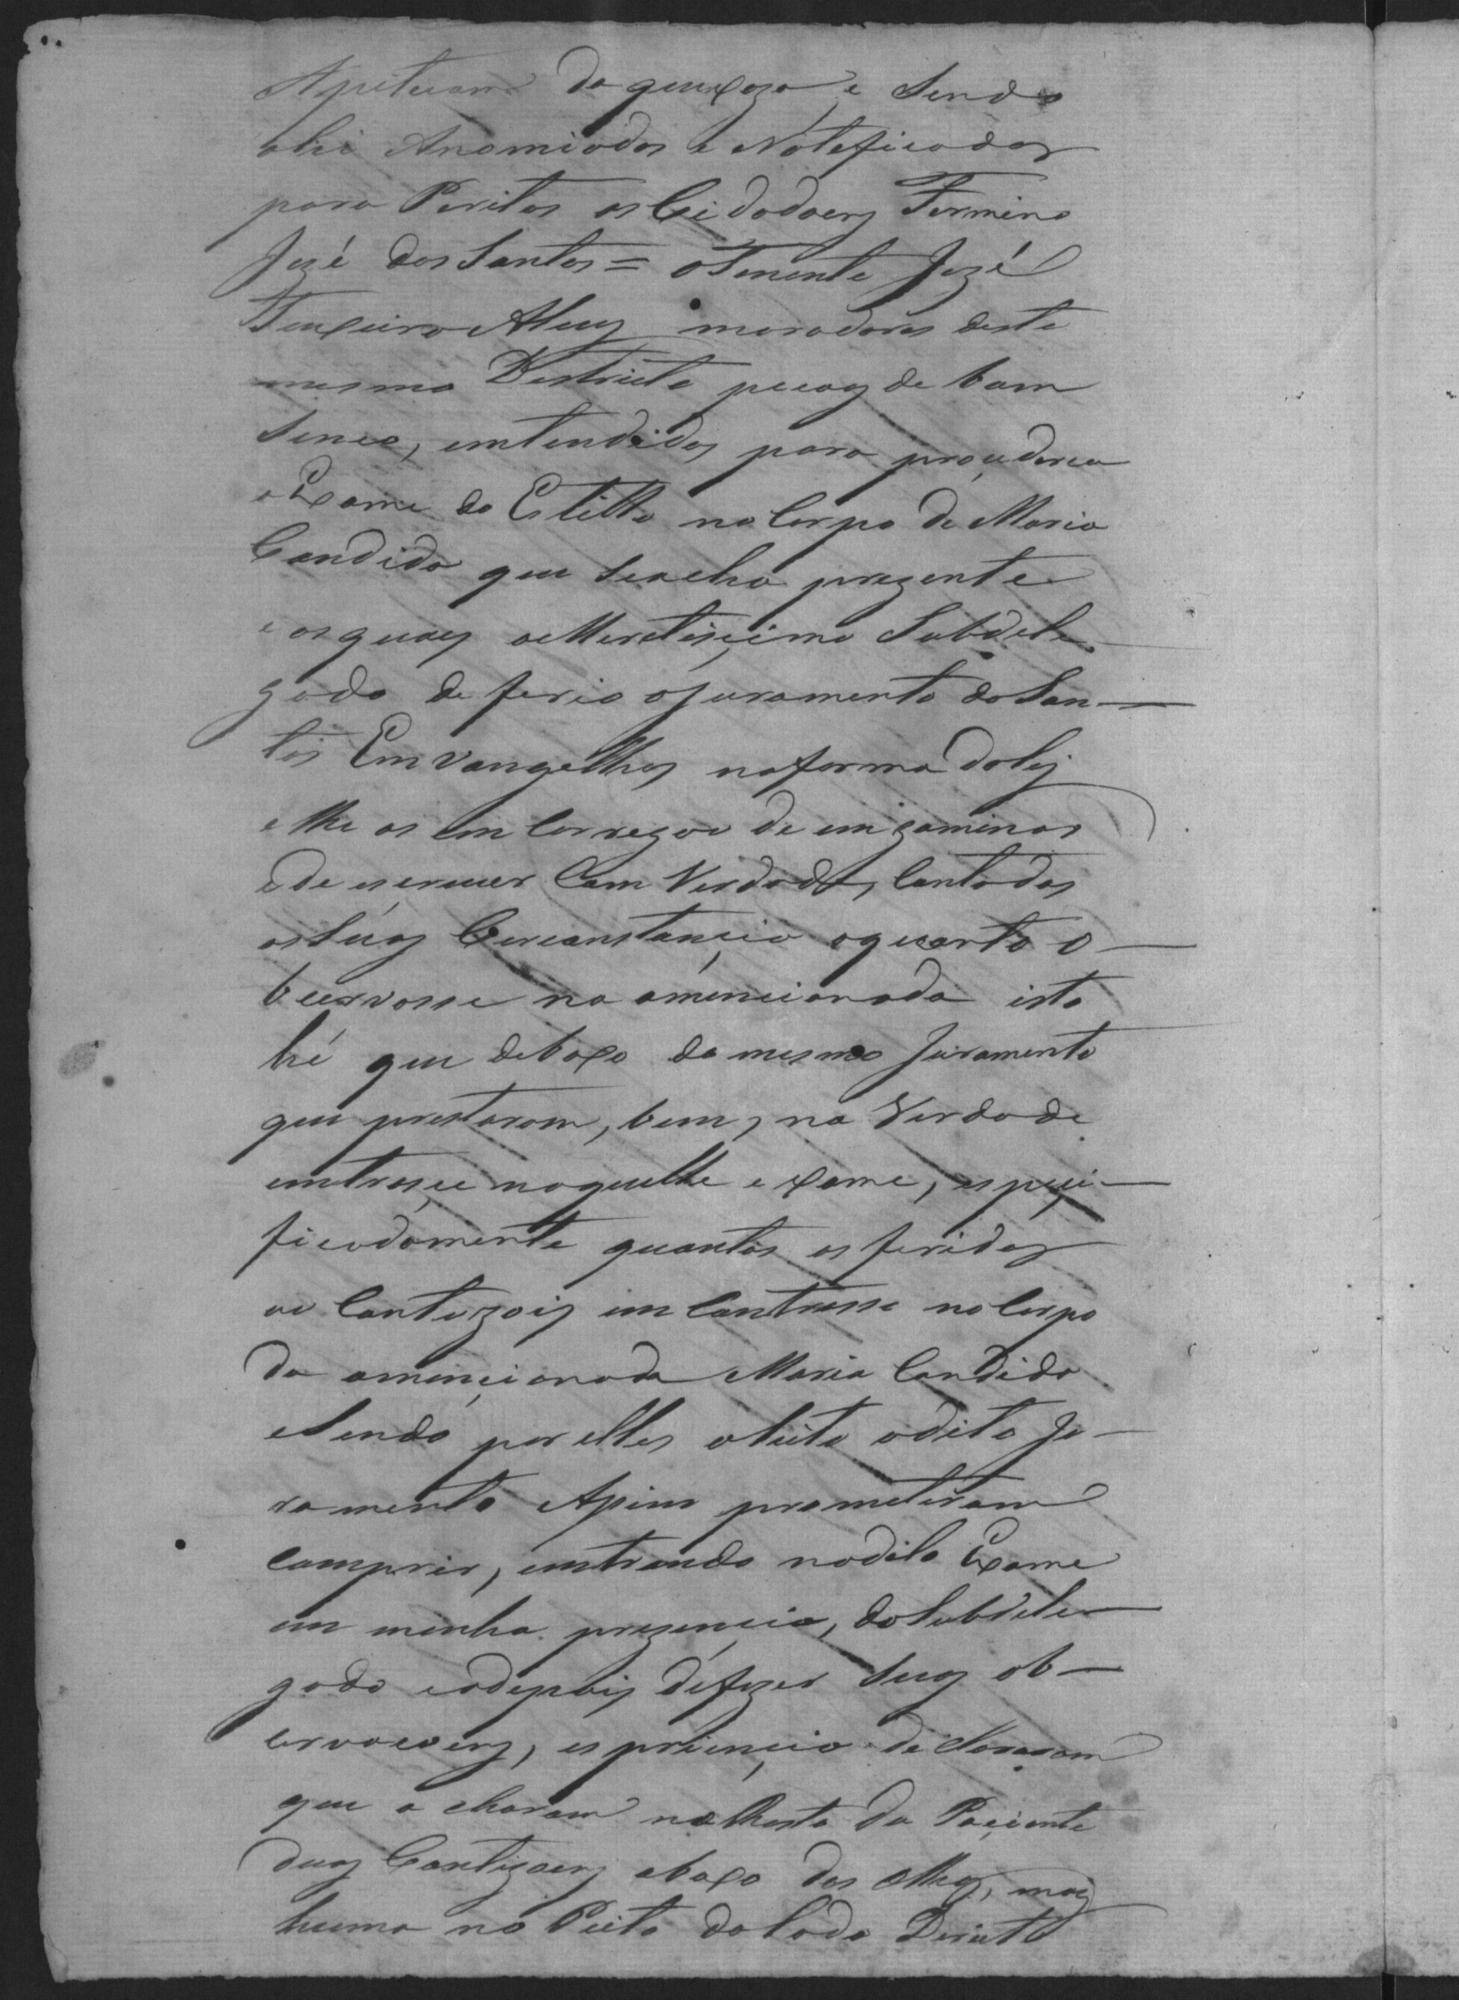 da queixoza, e Sendo
ahi Anomiados e Noteficados
para Peritos os Cidadoens Fermino
Jozé dos Santos = o Tenente Jozé
Teixeira Alves moradores deste
mesmo Destricto pecoas de bom
Senco, emtendidos para proçederem
a Exame do Estillo no Corpo de Maria
Candida que se acha prezente
e os quaes o Meretisçimo Subdele
gado deferio o juramento do San
tos Emvangelhos na forma da lej
e lhe os em Carregou de emzaminar
e de escrever Com Verdade, Com todas
as Suas Circonstançia o quanto o
becervasse na amencionada isto
hé que debaxo do mesmo Juramento
que prestaram, bem, na Verdade
emtraçe naquelle exame, espeçi
ficadamente quantas as feridas
ou Contuzois em Contrasse no Corpo
da amençionada Maria Candida
e Sendo por elles aceito o dito Ju
ramento Açim prometeram
comprir, emtrando no dito Exame
em minha prezencia, do Subdele
gado e a depois de fazer Suas ob
cervacoens, espriencia declararam
que acharam no Rosto da Paçiente
duas Contizoens abaxo dos olhos, mais
huma no Peito do lado Direito